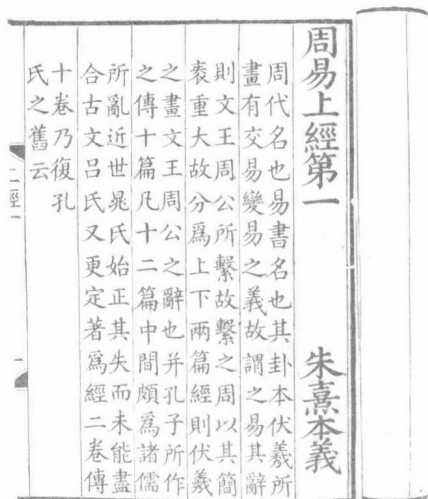 周易上經第一 朱熹本義
周代名也易書名也其卦本伏羲所
畫有交易變易之義故謂之易其辭
則文王周公所繫故繫之周以其簡
袠重大故分爲上下兩篇經則伏羲
之畫文王周公之辭也并孔子所作
之傳十篇凡十二篇中間頗爲諸儒
所亂近世晁氏始正其失而未能盡
合古文呂氏又更定著爲經二卷傳
十卷乃復孔
氏之舊云